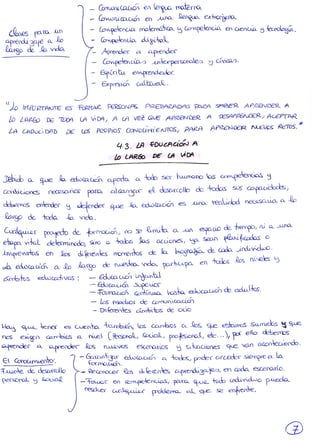 - Comunicación en lengua materna.
- Comunicación en una lengua extranjera.
- Competencia matemática y Competencia en ciencia y tecnología.
Claves para un aprendizaje a lo largo de la vida
- Competencia digital.
- Aprender a aprender
- Competencias interpersonales y cívicas.
- Espíritu emprendedor.
- Expresión cultural.
"LO IMPORTANTE ES FORMAR PERSONAS PREPARADAS PARA SABER APRENDER A
LO LARGO DE TODA LA VIDA, A LA VEZ QUE APRENDER A DESAPRENDER, ACEPTAR
LA CADUCIDAD DE LOS PROPIOS CONOCIMIENTOS, PARA APRENDER NUEVOS RETOS."
4.3. LA EDUCACIÓN A
LO LARGO DE LA VIDA
Debido a que la educación aporta a todo ser humano las competencias y
condiciones necesarias para alcanzar el desarrollo de todas sus capacidades,
debemos entender y defender que la educación es una realidad necesaria a lo
largo de toda la vida.
Cualquier proyecto de formación, no se limita a un espacio de tiempo, ni a una
etapa vital determinada, sino a todas las acciones, ya sean planificadas o
imprevistas en los diferentes momentos de la biografía de cada individuo.
La educación a lo largo de nuestra vida, participa en todos los niveles y
ámbitos educativos:
- Educación infantil
- Educación superior
- Formación continua hasta educación de adultos.
- Los medios de comunicación
- Diferentes ámbitos de ocio
Hay que tener en cuenta también, los cambios a los que estamos sumidos y que
nos exigen cambios a nivel (Personal, social, profesional, etc...), por ello debemos
aprender a aprender los nuevos escenarios y situaciones que van aconteciendo.
El Conocimiento:
Fuente de desarrollo
personal y social
- Garantizar educación a todos, poder acceder siempre a la
formación.
- Reconocer los diferentes aprendizajes en cada escenario.
- Formar en competencias, para que todo individuo pueda
resolver cualquier problema al que se enfrente.
7